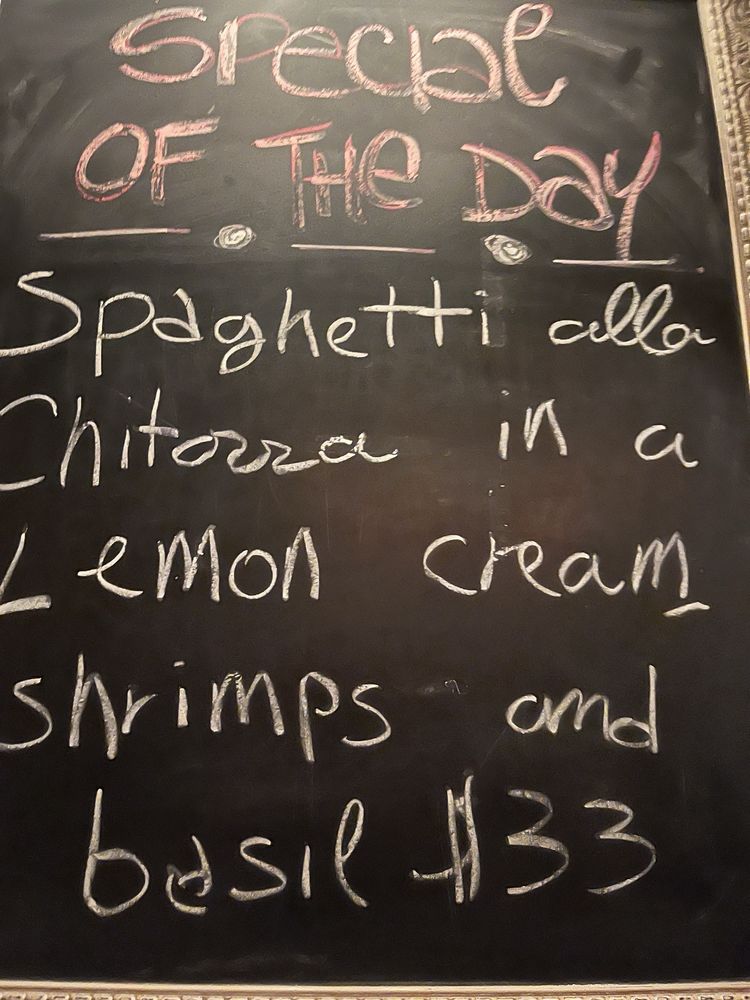 Special
OF THE Day
Spaghetti alla
Chitarra in a
Lemon cream
shrimps and
basil $33